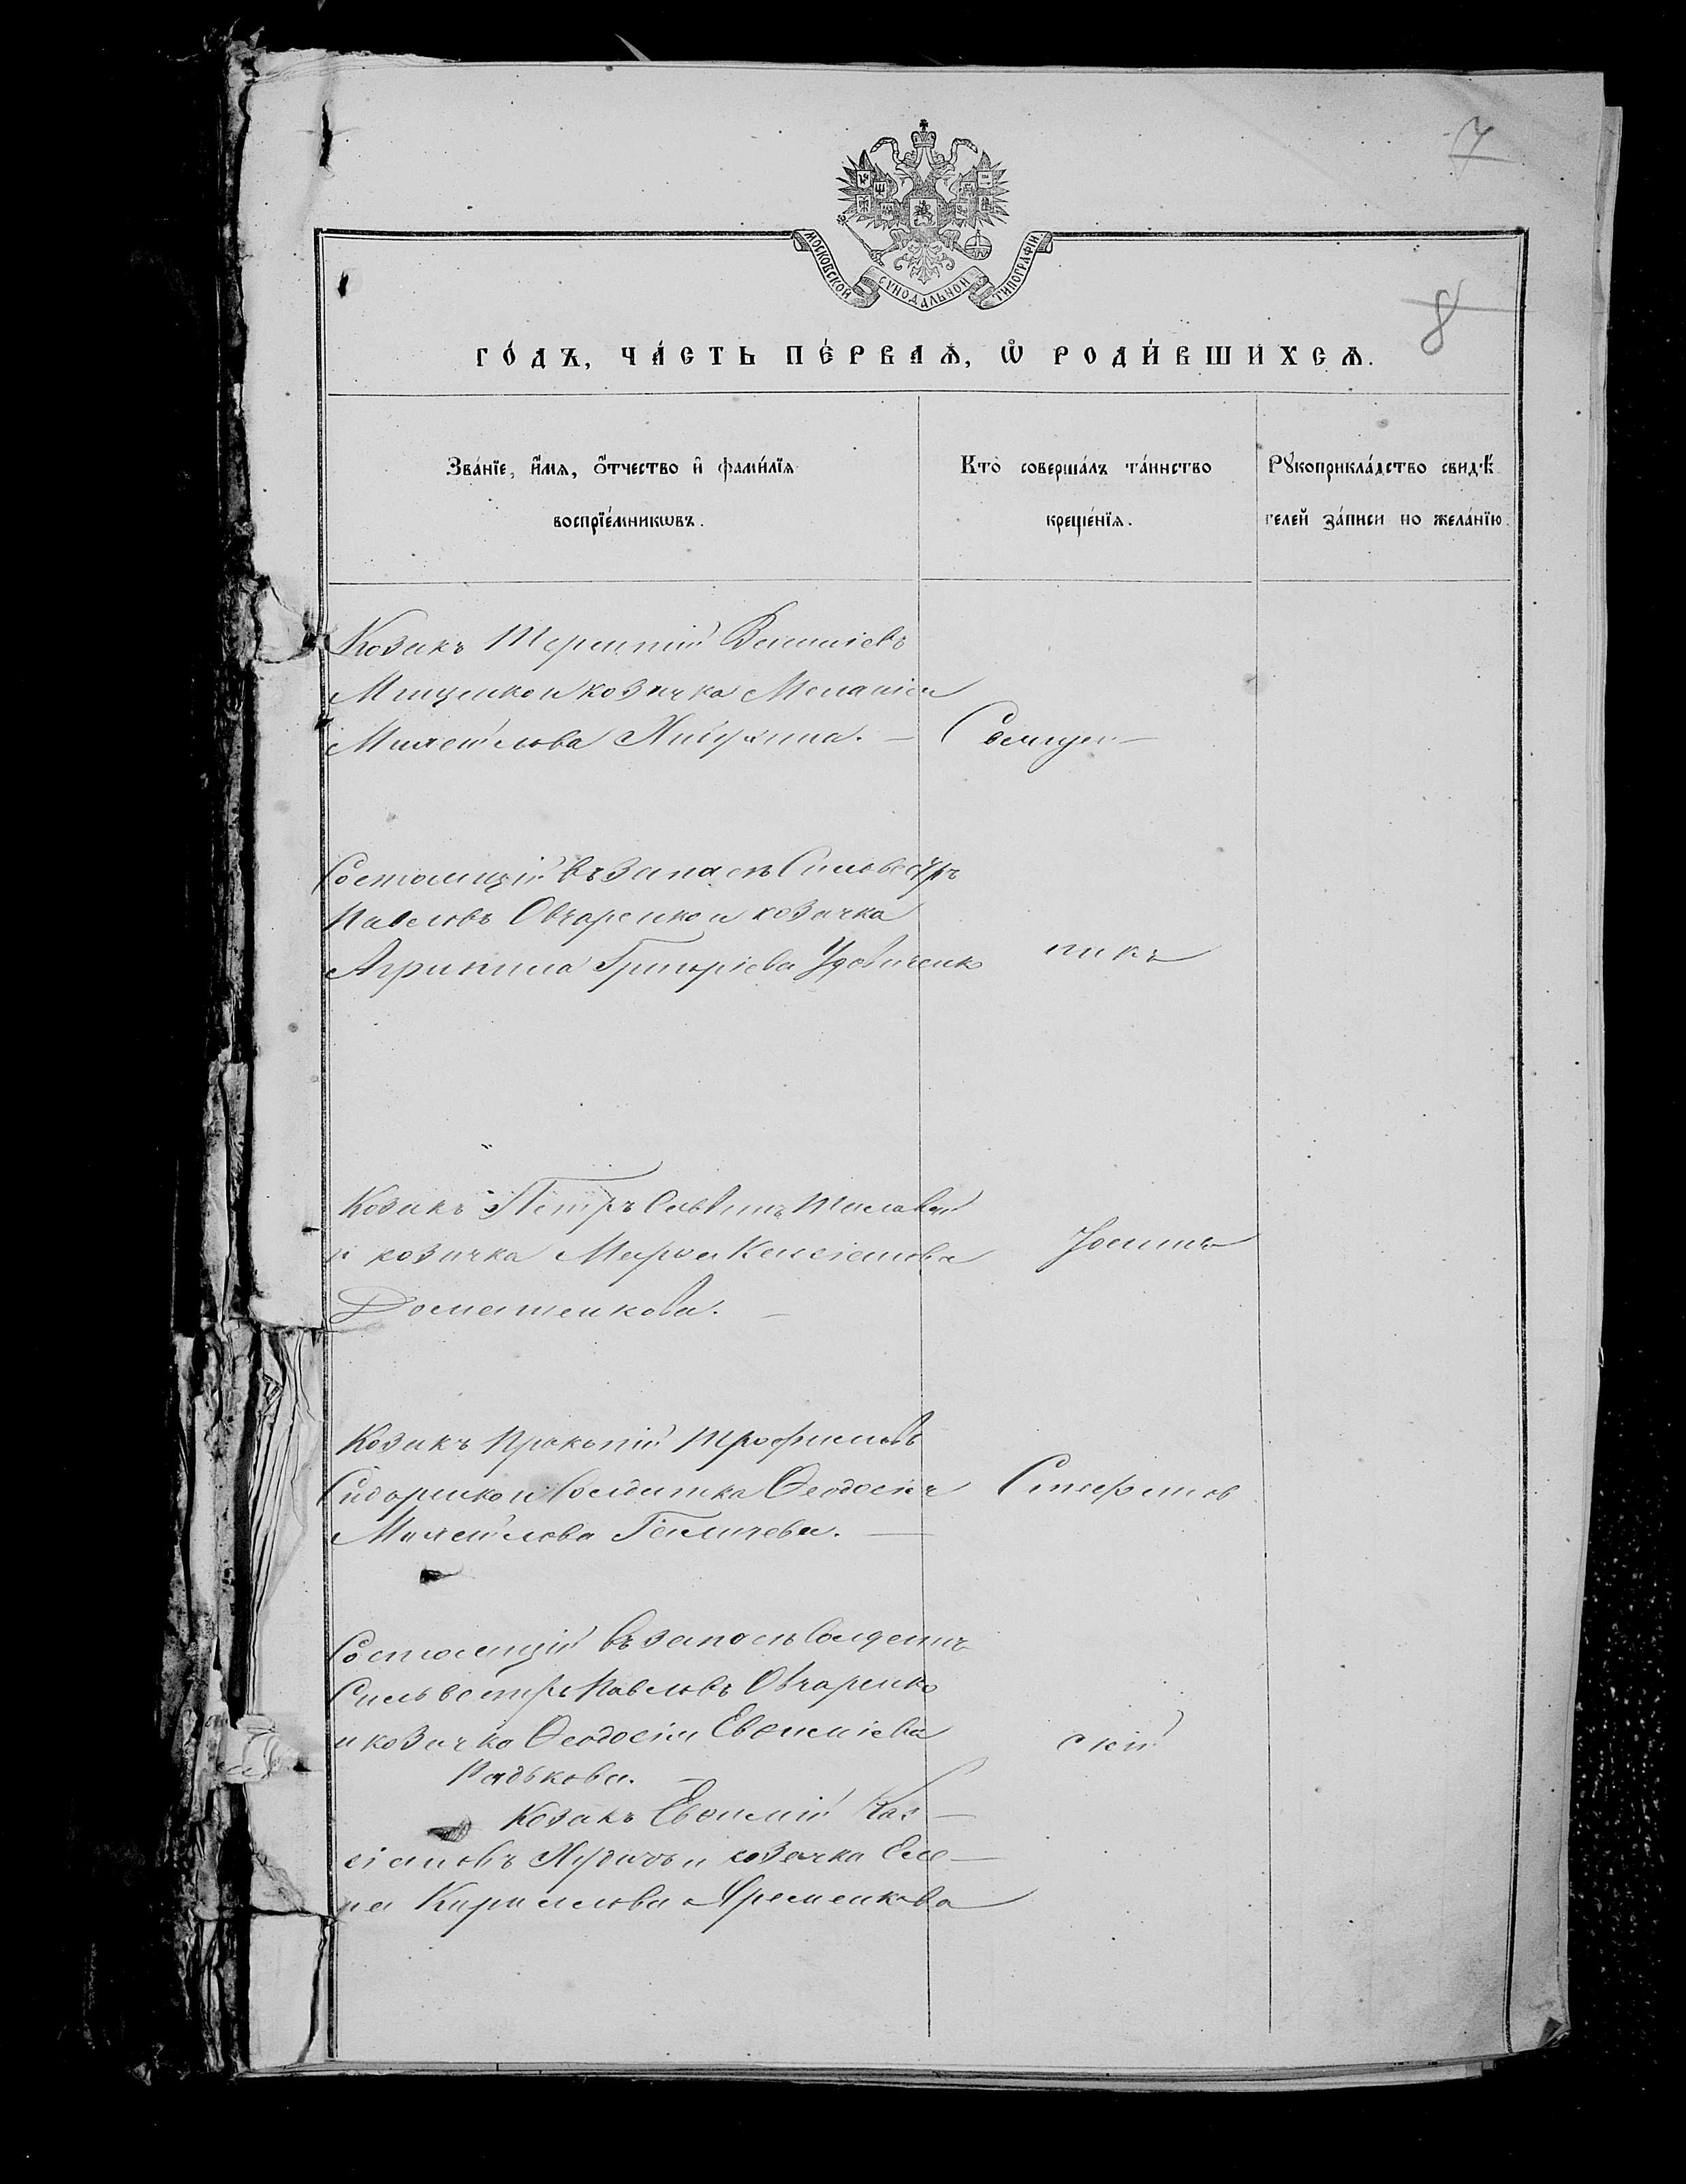 7
МОСКОВСКОЙ СѴНОДАЛЬНОЙ ТИПОГРАФІИ
8
ГО́ДЪ, ЧА́СТЬ ПЕ́РВАѦ, Ѡ҆ РОДИ́ВШИХСѦ.
Зва́нїе, и҆́мѧ, ѻ҆́тчество и҆ фами́лїѧ
воспрїе́мникѡвъ.
Кто̀ соверша́лъ та́инство
креще́нїѧ.
Рꙋкоприкла́дство свидѣ́
телей за́писи по жела́нїю.
Козакъ Терентій Васильевъ
Мищенко и козачка Меланія
Михайлова —
Священ—
Состоящій въ запасѣ Сильвестръ
Павловъ Овчаренко и козачка
Агрипина Григоріева Удовиченко
никъ
Козакъ Петръ Саввинъ
и козачка Марѳа Касіанова
Доматенкова. —
Іоаннъ
Козакъ Прокопій Трофимовъ
Сидоренко и солдатка Ѳеодосія
Михайлова —
Стефанов
Состоящій въ запасѣ солдатъ
Сильвестръ Павловъ Овчаренко
и козачка Ѳеодосія Евѳиміева
Радькова. —
скій
Козакъ Евѳимій Кас—
сіановъ и козачка Еле—
на Кириллова Яременкова